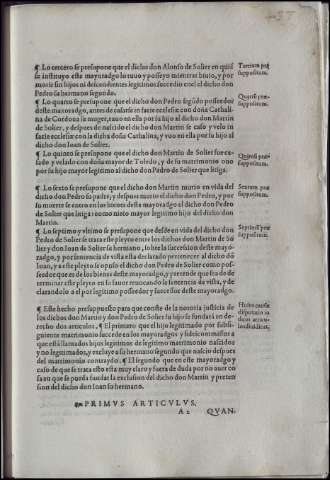 ¶ Lo tercero se presupone que el dicho don Alonso de Solier en quiẽ
se instituyo este mayoradgo lo tuuo y posseyo mientras biuio, y por
morir sin hijos ni descendientes legitimos sucedio en el el dicho don
Pedro su hermano segundo.
Tertium præ
suppositum.
¶ Lo quarto se presupone que el dicho don Pedro segũdo posseedor
deste mayoradgo, antes de casarse en facie ecclesiæ con doña Cathali
na de Cordoua su muger, tuuo en ella por su hijo al dicho don Martin
de Solier, y despues de nascido el dicho don Martin se caso y velo in
facie ecclesiæ con la dicha doña Cathalina, y tuuo en ella por su hijo al
dicho don Ioan de Solier.
Quartũ præ
suppositum.
¶ Lo quinto se presupone que el dicho don Martin de Solier fue ca-
sado y velado con doña mayor de Toledo, y de su matrimonio ouo
por su hijo mayor legitimo al dicho don Pedro de Solier que litiga.
Quintũ præ
suppositum.
¶ Lo sexto se presupone que el dicho don Martin murio en vida del
dicho don Pedro su padre, y despues murio el dicho don Pedro, y por
su muerte se entro en los bienes deste mayoradgo el dicho don Pedro
de Solier que litiga: como nieto mayor legitimo hijo del dicho don
Martin.
Sextum præ
suppositum.
¶ Lo septimo y vltimo se presupone que desde en vida del dicho don
Pedro de Solier se trata este pleyto entre los dichos don Martin de So
lier y don Ioan de Solier su hermano, sobre la sucession deste mayo-
radgo, y por sentencia de vista esta declarado pertenecer al dicho dõ
Ioan, y a este pleyto se opuso el dicho don Pedro de Solier como pos-
seedor que es de los bienes deste mayoradgo, y pretende que se a de de
terminar este pleyto en su fauor reuocando la sentencia de vista, y de
clarandolo a el por legitimo posseedor y sucessor deste mayoradgo.
Septimũ præ
suppositum.
¶ Este hecho presupuesto para que conste de la notoria justicia de
los dichos don Martin y don Pedro de Solier su hijo se fundara en de-
recho dos articulos. ¶ El primero que el hijo legitimado por subsi-
guiente matrimonio sucede en los mayoradgos y fideicommissos a
que estã llamados hijos legitimos de legitimo matrimonio nascidos
y no legitimados, y excluye a su hermano segundo que nacio despues
del matrimonio contraydo. ¶ El segundo que en este mayoradgo y
caso de que se trata esto esta muy claro y fuera de duda por no auer en
ca su que se pueda fundar la exclusion del dicho don Martin y preten
sion del dicho don Ioan su hermano.
PRIMVS ARTICVLVS.
A 2 QVAN.